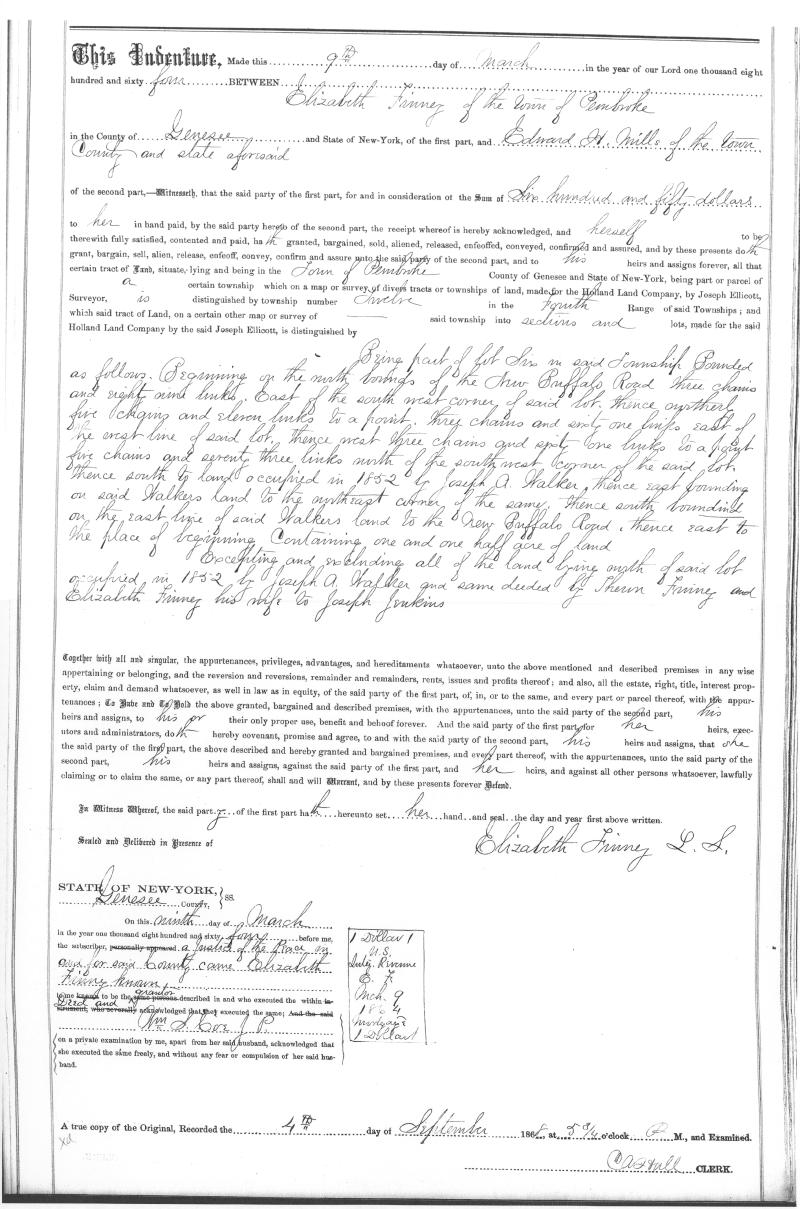 This Indenture, Made this 9th day of March in the year of our Lord one thousand eight
hundred and sixty four BETWEEN
Elizabeth Finney of the town of Pembroke
in the County of Genesee and State of New-York, of the first part, and Edward H. Mills of the town
County and state aforesaid
of the second part,—Witnesseth, that the said party of the first part, for and in consideration of the Sum of Six hundred and fifty dollars
to her in hand paid, by the said party hereto of the second part, the receipt whereof is hereby acknowledged, and herself to be
therewith fully satisfied, contented and paid, hath granted, bargained, sold, aliened, released, enfeoffed, conveyed, confirmed and assured, and by these presents doth
grant, bargain, sell, alien, release, enfeoff, convey, confirm and assure unto the said party of the second part, and to his heirs and assigns forever, all that
certain tract of Land, situate, lying and being in the Town of Pembroke County of Genesee and State of New-York, being part or parcel of
a certain township which on a map or survey of divers tracts or townships of land, made for the Holland Land Company, by Joseph Ellicott,
Surveyor, is distinguished by township number Twelve in the Fourth Range of said Townships; and
which said tract of Land, on a certain other map or survey of said township into sections and lots, made for the said
Holland Land Company by the said Joseph Ellicott, is distinguished by
Being part of Lot Six in said Township Bounded
as follows. Beginning on the north bounds of the New Buffalo Road three chains
and eighty nine links East of the south west corner of said lot, thence northerly
five chains and eleven links to a point three chains and sixty one links east of
the west line of said lot, thence west three chains and sixty one links to a point
five chains and seventy three links north of the southwest corner of the said lot.
thence south to land occupied in 1852 by Joseph A. Walker, thence east bounding
on said Walkers land to the northeast corner of the same, thence south bounding
on the east line of said Walkers land to the New Buffalo Road, thence east to
the place of beginning Containing one and one half acre of land
Excepting and excluding all of the land lying north of said lot
occupied in 1852 by Joseph A. Walker and same deeded by Theron Finney and
Elizabeth Finney his wife to Joseph Jenkins
Together with all and singular, the appurtenances, privileges, advantages, and hereditaments whatsoever, unto the above mentioned and described premises in any wise
appertaining or belonging, and the reversion and reversions, remainder and remainders, rents, issues and profits thereof; and also, all the estate, right, title, interest prop-
erty, claim and demand whatsoever, as well in law as in equity, of the said party of the first part, of, in, or to the same, and every part or parcel thereof, with the appur-
tenances; To Have and To Hold the above granted, bargained and described premises, with the appurtenances, unto the said party of the second part, his
heirs and assigns, to his or their only proper use, benefit and behoof forever. And the said party of the first part, for her heirs, exec-
utors and administrators, doth hereby covenant, promise and agree, to and with the said party of the second part, his heirs and assigns, that she
the said party of the first part, the above described and hereby granted and bargained premises, and every part thereof, with the appurtenances, unto the said party of the
second part, his heirs and assigns, against the said party of the first part, and her heirs, and against all other persons whatsoever, lawfully
claiming or to claim the same, or any part thereof, shall and will Warrant, and by these presents forever Defend.
In Witness Whereof, the said party of the first part hath hereunto set her hand and seal the day and year first above written.
Sealed and Delivered in Presence of
Elizabeth Finney L. S.
STATE OF NEW-YORK,
Genesee County, } ss.
On this ninth day of March
in the year one thousand eight hundred and sixty four before me,
the subscriber, personally appeared a Justice of the Peace in
and for said County came Elizabeth
Finney known
to me known to be the same persons grantor described in and who executed the within in-
Deed and
strument, who severally acknowledged that they executed the same; And the said
Wm S. Cox J. P.
on a private examination by me, apart from her said husband, acknowledged that
she executed the same freely, and without any fear or compulsion of her said hus-
band.
1 Dollar 1
U.S.
Inter. Revenue
E. F.
Mch. 9
1864
Mortgage
1 Dollar 1
A true copy of the Original, Recorded the 4th day of September 1868, at 5 3/4 o'clock P. M., and Examined.
CLERK.